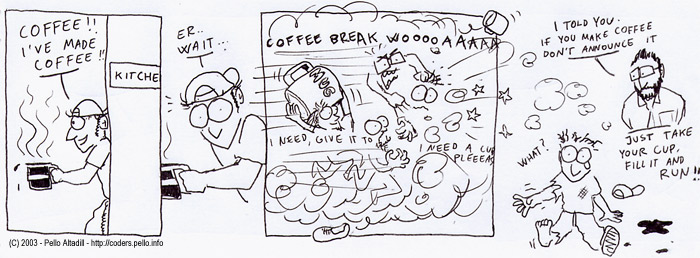 COFFEE!!
I'VE MADE
COFFEE!!
KITCHE
ER..
WAIT..
COFFEE BREAK WOOOOAAAAA
I NEED, GIVE IT TO
I NEED A CU
PLEEEAS
I TOLD YOU.
IF YOU MAKE COFFEE
DON'T ANNOUNCE IT
WHAT?
JUST TAKE
YOUR CUP,
FILL IT AND
RUN!!
(C) 2003 - Pello Altadill - http://coders.pello.info